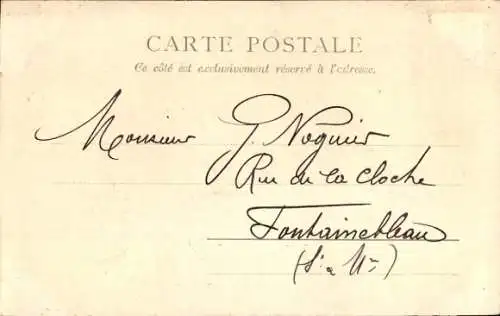 CARTE POSTALE
Ce côté est exclusivement réservé à l'adresse.
Monsieur G. Noguier
Rue de la Cloche
Fontainebleau
(S. & Mne)